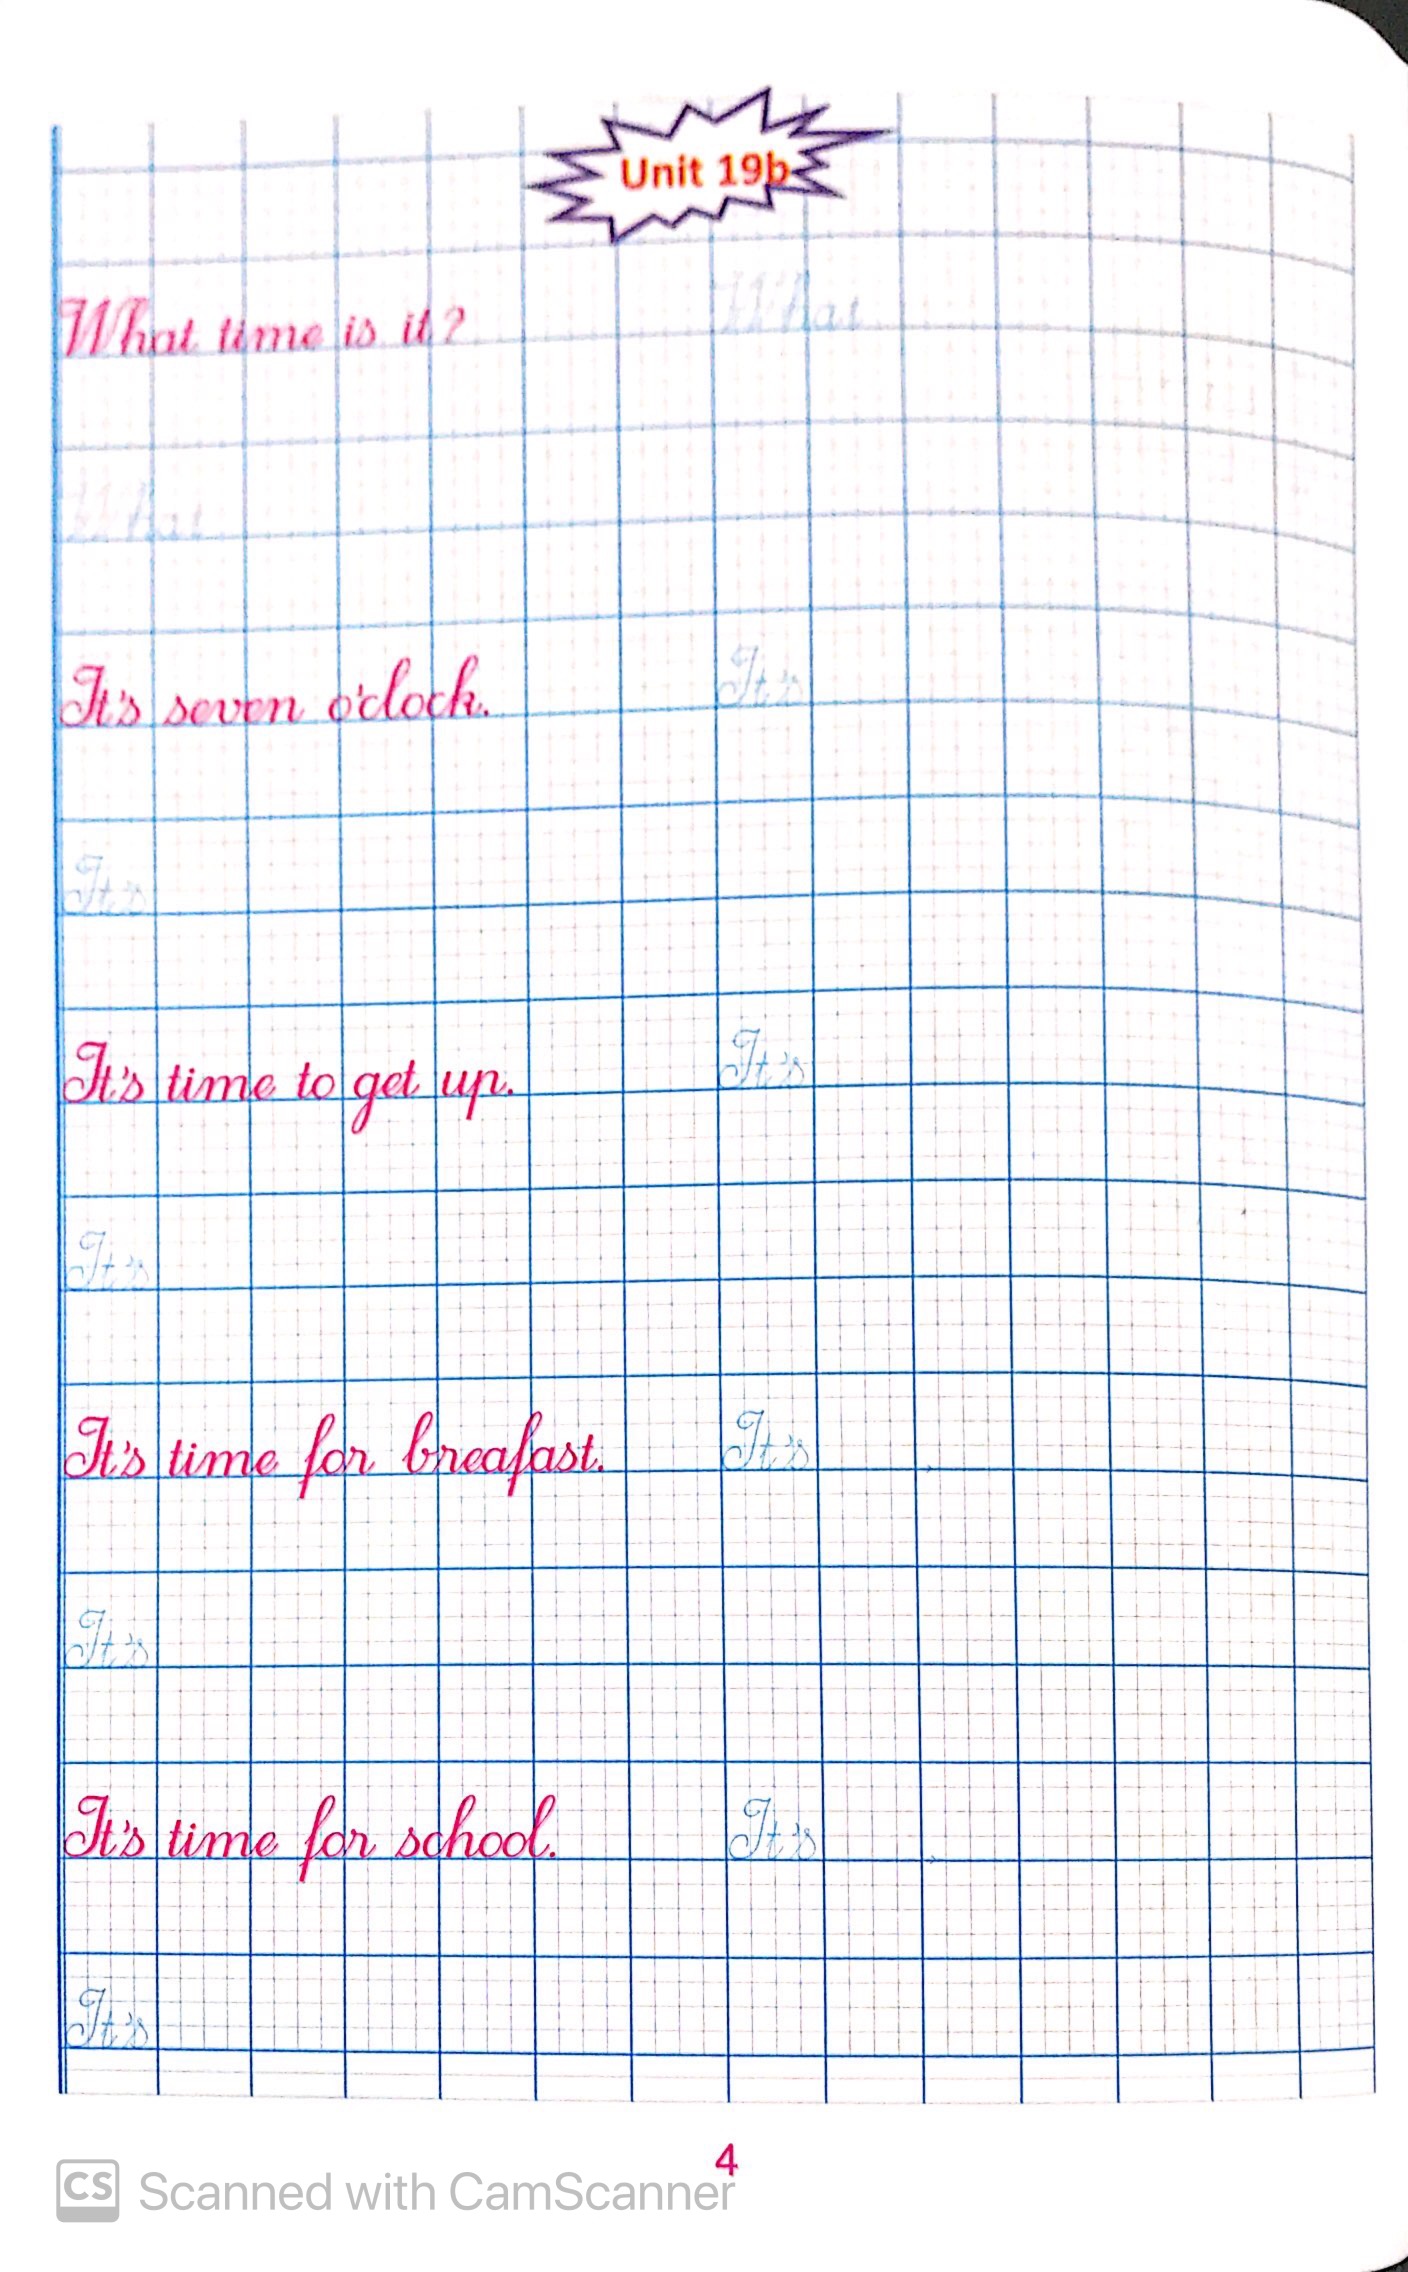 Unit 19b
What time is it? What
What
It's seven o'clock. It's
It's
It's time to get up. It's
It's
It's time for breafast. It's
It's
It's time for school. It's
It's
4
CS Scanned with CamScanner